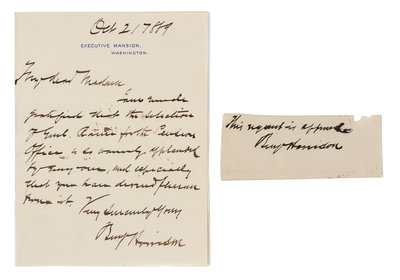 Oct 21 1889
EXECUTIVE MANSION,
WASHINGTON.
My dear Madam
I am much
gratified that the selection
of Genl. Raum for the Pension
Office is so warmly applauded
by every one, and especially
that you have derived pleasure
from it.
Very sincerely Yours
Benj Harrison
This request is approved
Benj Harrison